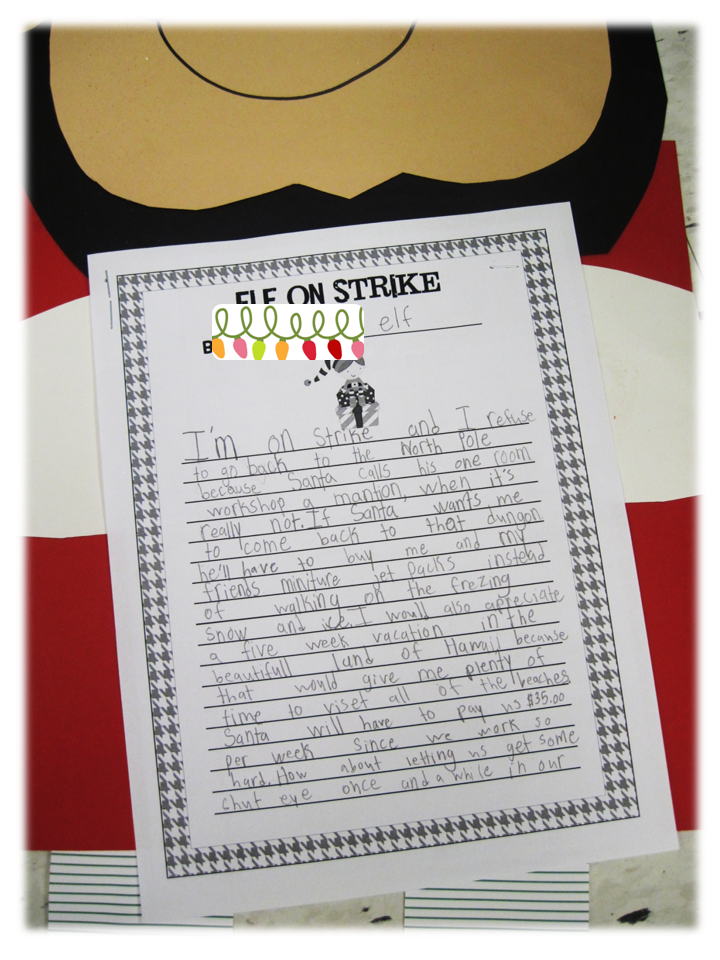 ELF ON STRIKE
B elf
I'm on strike and I refuse
to go back to the North Pole
because Santa calls his one room
workshop a mantion, when it's
really not. If Santa wants me
to come back to that dungon
he'll have to buy me and my
friends miniture jet packs instead
of walking on the frezing
snow and ice. I would also appreciate
a five week vacation in the
beautifull land of Hawaii because
that would give me plenty of
time to viset all of the beaches.
Santa will have to pay us $35.00
per week since we work so
hard. How about letting us get some
shut eye once and a while in our